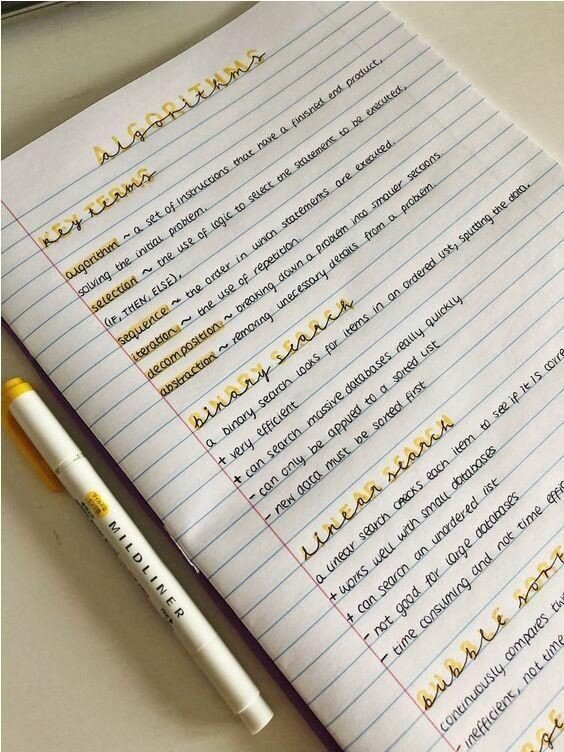 ALGORITHMS
algorithms
KEY TERMS
key terms
algorithm ~ a set of instructions that have a finished end product,
solving the initial problem.
selection ~ the use of logic to select the statement to be executed.
(IF, THEN, ELSE),
sequence ~ the order in which statements are executed.
iteration ~ the use of repetition.
decomposition ~ breaking down a problem into smaller sections
abstraction ~ removing unnecessary details from a problem.
BINARY SEARCH
binary search
a binary search looks for items in an ordered list, splitting the data.
+ very efficient
+ can search massive databases really quickly
- can only be applied to a sorted list
- new data must be sorted first
LINEAR SEARCH
linear search
a linear search checks each item to see if it is
+ works well with small databases
+ can search an unordered list
- not good for large databases
- time consuming and not time
BUBBLE SORT
bubble sort
continuously compares
inefficient, not time
MILDLINER